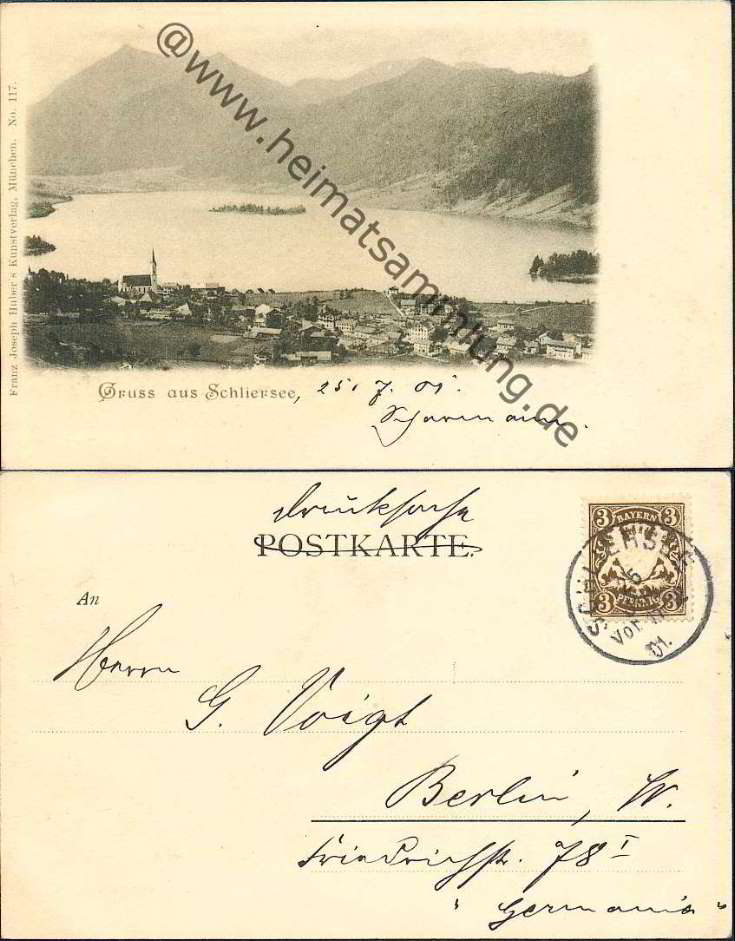 @www.heimatsammlung.de
Franz Joseph Huber's Kunstverlag, München. No. 117.
Gruss aus Schliersee, 25. 7. 01.
Scharmann.
Drucksache
POSTKARTE.
3 BAYERN 3
3 PFENNIG 3
SCHLIERSEE
Vor
01.
An
Herrn
G. Voigt
Berlin, W.
Friedrichstr. 78 I
"Germania"